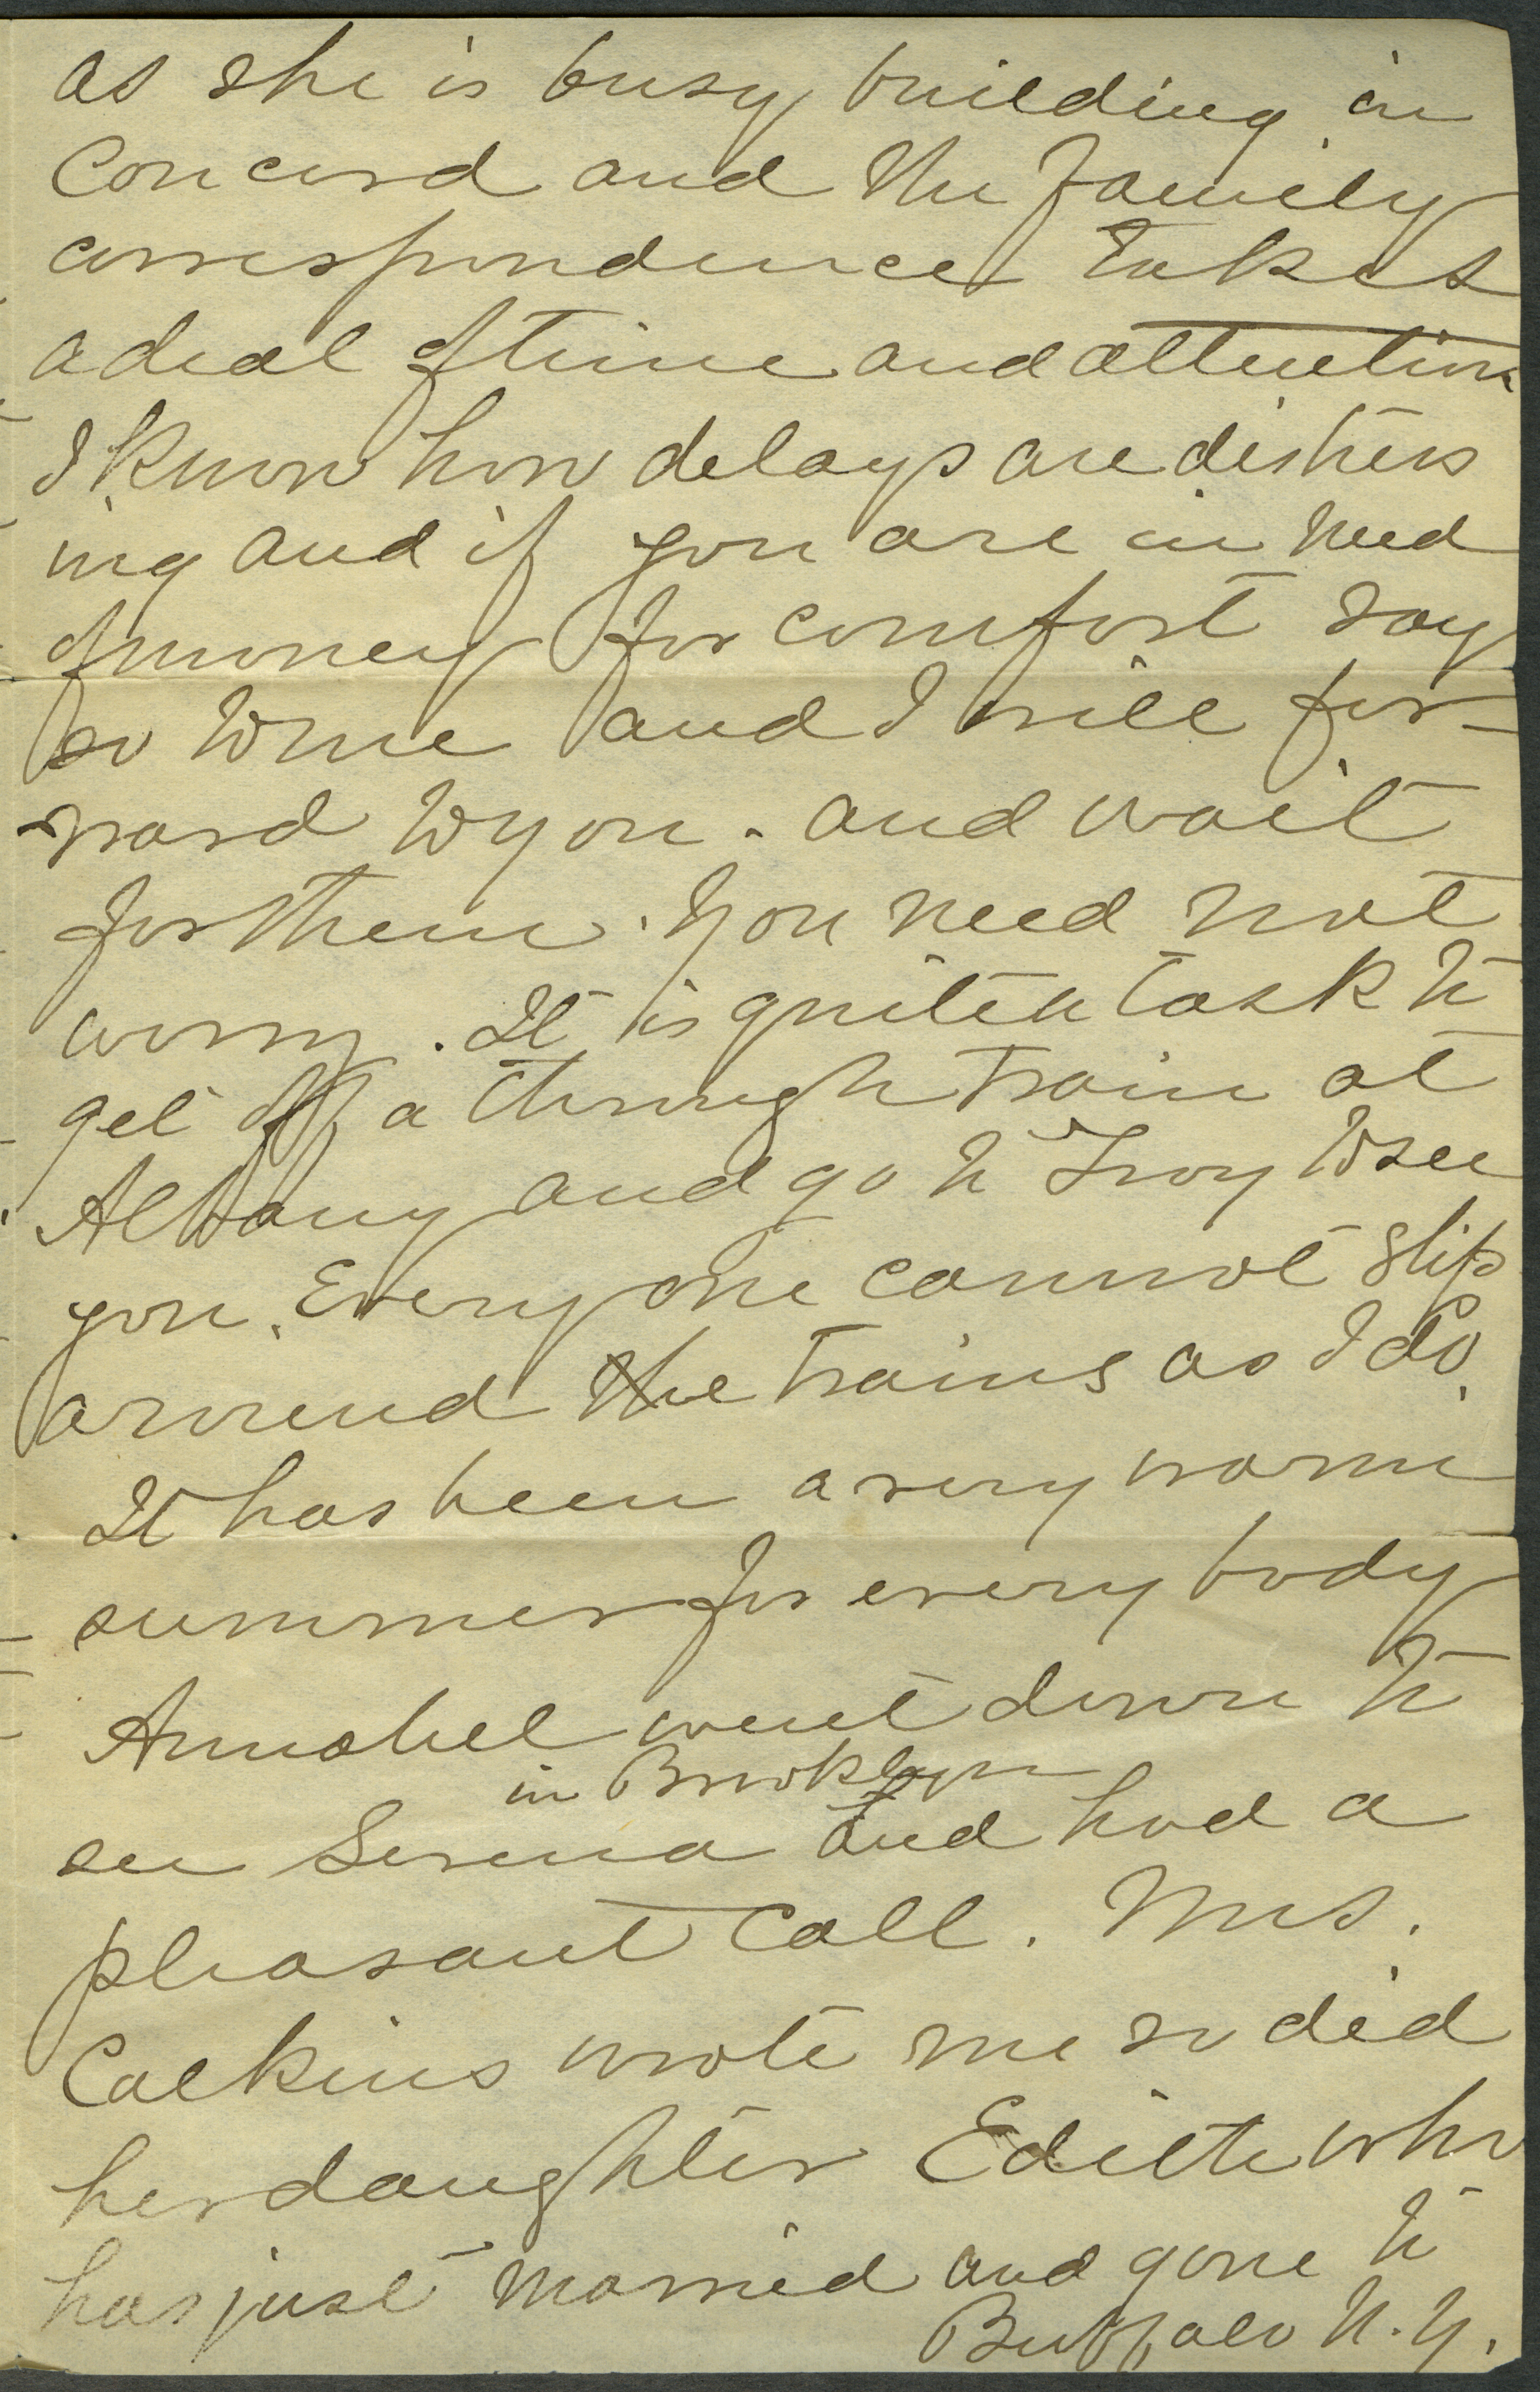 as she is busy building in
Concord and the family
correspondence takes
a deal of time and attention
I know how delays are distress
ing and if you are in need
of money for comfort say
so to me and I will for-
ward to you. and wait
for them. You need not
worry. It is quite a task to
get off a through train at
Albany and go to Troy to see
you. Every one cannot slip
around the trains as I do.
It has been a very warm
summer for every body
Annabel went down to
in Brooklyn
see Serena and had a
pleasant call. Mrs.
Calkins wrote me so did
her daughter Edith who
has just married and gone to
Buffalo N.Y.